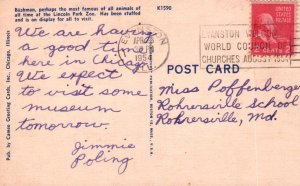 Bushman, perhaps the most famous of all animals of
all time of the Lincoln Park Zoo. Has been stuffed
and is on display for all to visit.
K1590
We are having
a good time
here in Chicago.
We expect
to visit some
museum
tomorrow.
Jimmie
Poling
Pub. by Cameo Greeting Cards, Inc., Chicago, Illinois
1954
EVANSTON
WORLD COUNCIL
CHURCHES AUGUST 1954
POST CARD
Miss Poffenberger
Rohrersville School
Rohrersville, Md.